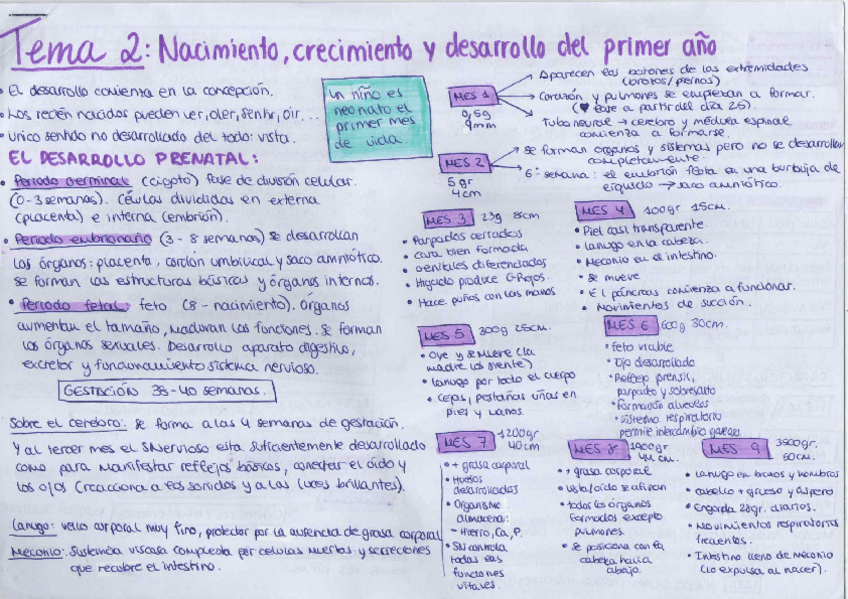 Tema 2: Nacimiento, crecimiento y desarrollo del primer año
• El desarrollo comienza en la concepción.
• Los recién nacidos pueden ver, oler, sentir, oír...
• Único sentido no desarrollado del todo: vista.
un niño es
neonato el
primer mes
de vida.
EL DESARROLLO PRENATAL:
• Periodo germinal (cigoto) fase de división celular.
(0-3 semanas). Células divididas en externa
(placenta) e interna (embrión).
• Periodo embrionario (3-8 semanas) se desarrollan
los órganos: placenta, cordón umbilical y saco amniótico.
se forman las estructuras básicas y órganos internos.
• Periodo fetal: feto (8 - nacimiento). Organos
aumentan el tamaño, maduran las funciones. Se forman
los órganos sexuales. Desarrollo aparato digestivo,
excretor y funcionamiento sistema nervioso.
GESTACIÓN 38-40 semanas.
Sobre el cerebro: se forma a las 4 semanas de gestación.
Y al tercer mes el SNervioso esta suficientemente desarrollado
como para manifestar reflejos básicos, conectar el oído y
los ojos (reacciona a los sonidos y a las luces brillantes).
Lanugo: vello corporal muy fino, protector por la ausencia de grasa corporal
Meconio: Sustancia viscosa compuesta por celulas muertas y secreciones
que recobre el intestino.
MES 1
9mm
Aparecen los botones de las extremidades
(brotes/piernas)
Corazón y pulmones se empiezan a formar.
(♥ late a partir del día 25).
Tubo neural → cerebro y médula espinal
comienza a formarse.
MES 2
5 gr
4cm
se forman organos y sistemas pero no se desarrollan
completamente.
6ª semana: el embrión flota en una burbuja de
líquido → saco amniótico.
MES 3 23g 8cm
• Parpados cerrados
• cara bien formada
• Genitales diferenciados
• Higado produce G.Rojos.
• Hace puños con las manos
MES 4 100gr 15cm.
• Piel casi transparente
• Lanugo en la cabeza.
• Meconio en el intestino.
• Se mueve
• El páncreas comienza a funcionar.
• Movimientos de succión.
MES 5 300g 25cm.
• Oye y se mueve (la
madre los siente)
• Lanugo por todo el cuerpo
• Cejas, pestañas uñas en
pies y manos.
MES 6 600g 30cm.
• feto viable
• Ojo desarrollado
• Reflejo prensil,
parpadeo y sobresalto
• Formación alveolos
• Sistema respiratorio
permite intercambio gaseoso
MES 7 1200gr
40cm
• + grasa corporal
• Huesos
desarrollados
• Organismo
almacena:
- Hierro, Ca, P.
• SN controla
todas las
funciones
vitales.
MES 8
• + grasa corporal
• Vista/oído se afinan
• todos los órganos
formados excepto
pulmones.
• Se posiciona con la
cabeza hacia
abajo.
MES 9
50cm.
• Lanugo en brazos y hombros
• cabello + grueso y áspero
• Engorda 28gr. diarios.
• Movimientos respiratorios
frecuentes.
• Intestino lleno de meconio
(lo expulsa al nacer).